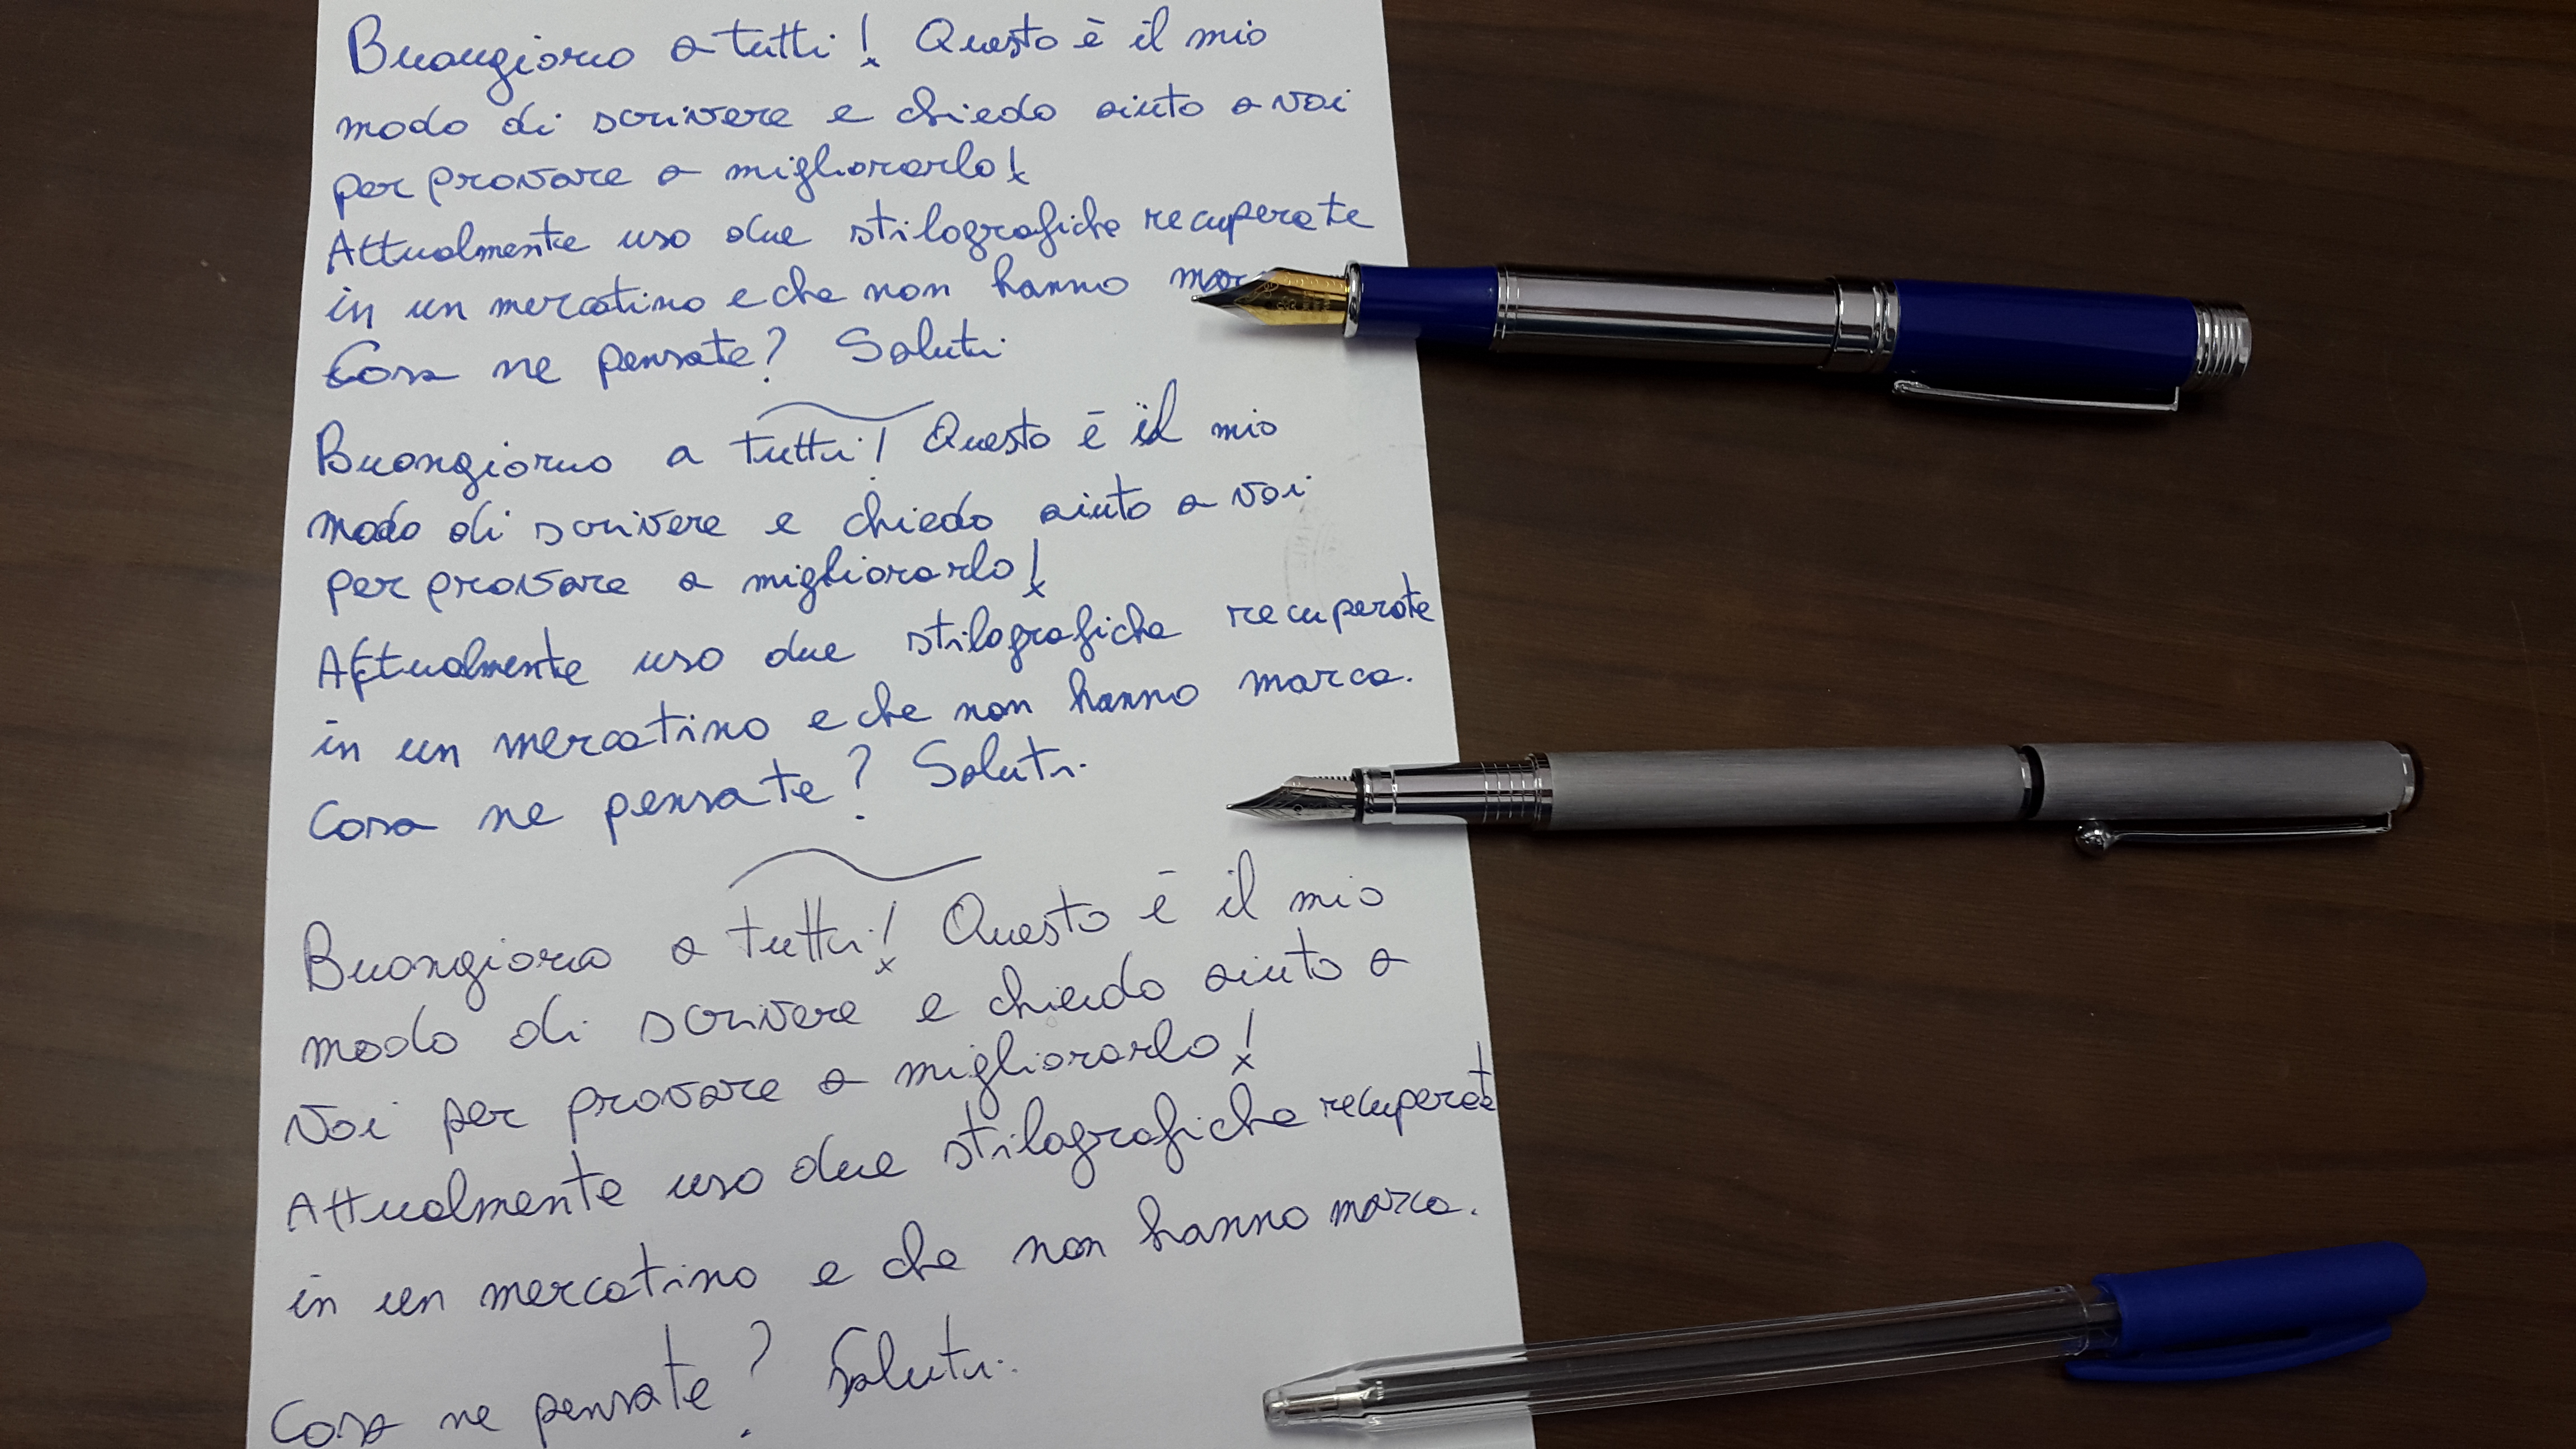 Buongiorno a tutti! Questo è il mio
modo di scrivere e chiedo aiuto a voi
per provare a migliorarlo!
Attualmente uso due stilografiche recuperate
in un mercatino e che non hanno mar
Cosa ne pensate? Saluti.
Buongiorno a tutti! Questo è il mio
modo di scrivere e chiedo aiuto a voi
per provare a migliorarlo!
Attualmente uso due stilografiche recuperate
in un mercatino e che non hanno marca.
Cosa ne pensate? Saluti.
Buongiorno a tutti! Questo è il mio
modo di scrivere e chiedo aiuto a
voi per provare a migliorarlo!
Attualmente uso due stilografiche recuperate
in un mercatino e che non hanno marca.
Cosa ne pensate? Saluti.